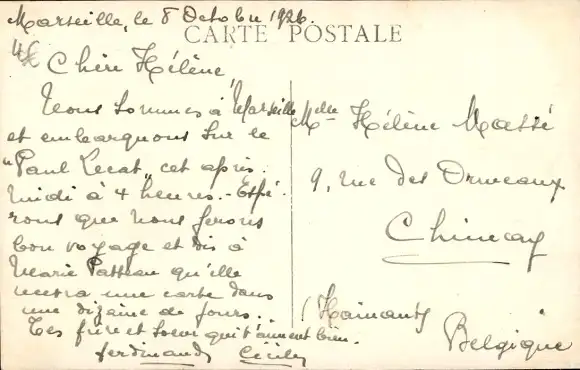 Marseille, le 8 Octobre 1926.
CARTE POSTALE
Chère Hélène,
Nous sommes à Marseille
et embarquons sur le
"Paul Lecat" cet après-
midi à 4 heures. - Espé-
rons que nous ferons
bon voyage et dis à
Marie Patteau qu'elle
recevra une carte dans
une dizaine de jours..
Tes frère et soeur qui t'aiment bien.
Ferdinand Cécile
Melle Hélène Massé
9, rue des Ormeaux
Chimay
(Hainaut)
Belgique